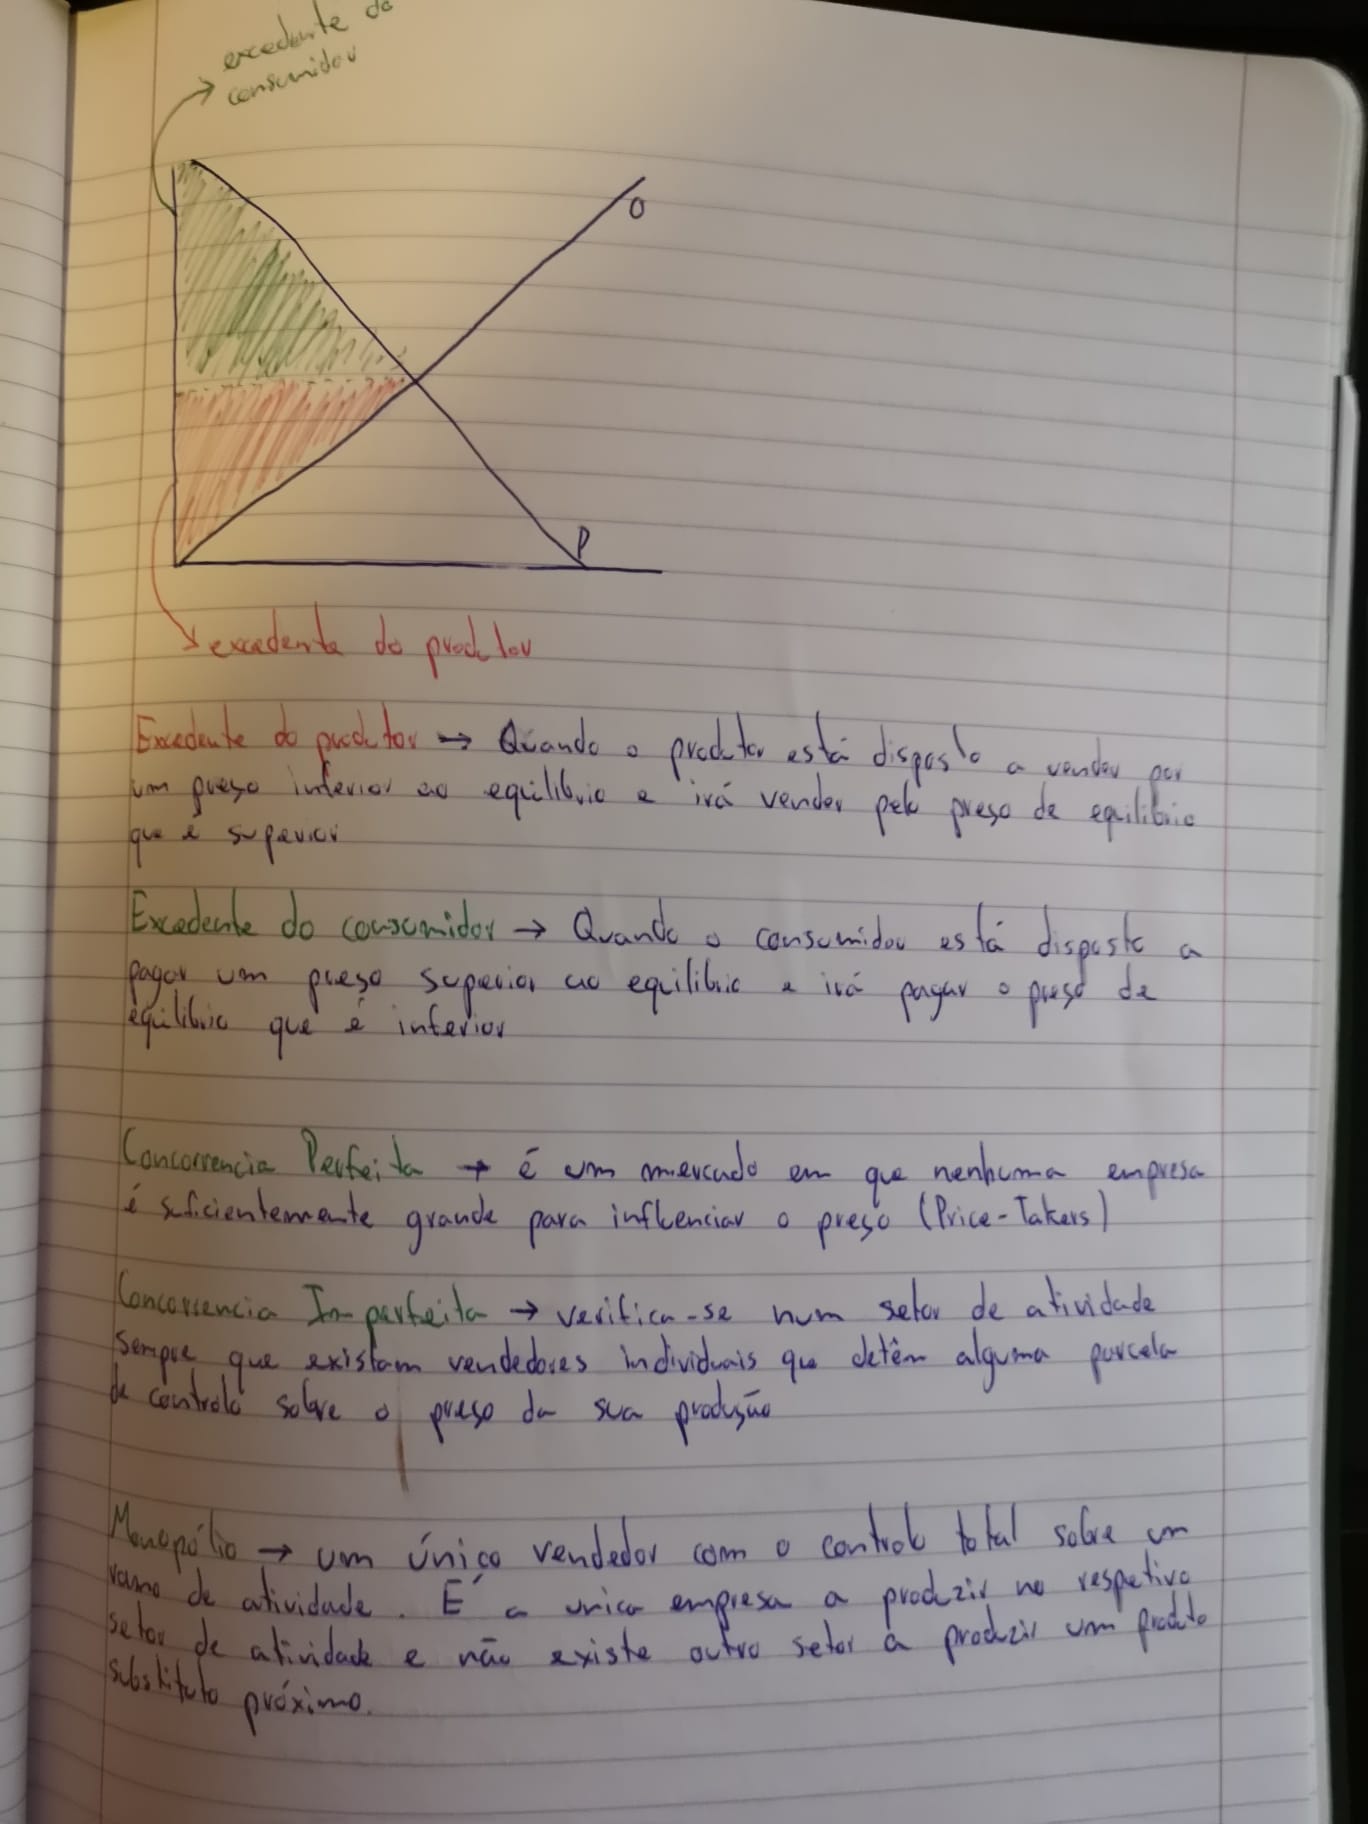 excedente do
consumidor
O
P
excedente do produtor
Excedente do produtor → Quando o produtor está disposto a vender por
um preço inferior ao equilibrio e irá vender pelo preço de equilibrio
que é superior
Excedente do consumidor → Quando o consumidor está disposto a
pagar um preço superior ao equilibrio e irá pagar o preço de
equilibrio que é inferior
Concorrencia Perfeita → é um mercado em que nenhuma empresa
é suficientemente grande para influenciar o preço (Price-Takers)
Concorrencia Imperfeita → verifica-se num setor de atividade
sempre que existam vendedores individuais que detêm alguma parcela
de controlo sobre o preço da sua produção
Monopólio → um único vendedor com o controlo total sobre um
ramo de atividade. É a unica empresa a produzir no respetivo
setor de atividade e não existe outro setor a produzir um produto
substituto próximo.